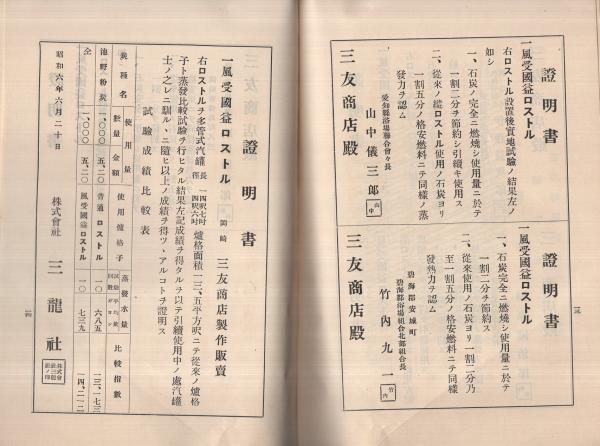 證明書
一風受國益ロストル
右ロストル設置後實地試驗ノ結果左ノ
如シ
一、石炭ノ完全ニ燃燒シ使用量ニ於テ
一割二分ヲ節約シ引續キ使用ス
二、從來ノ縱ロストル使用ノ石炭ヨリ
一割五分ノ格安燃料ニテ同樣ノ蒸
發力ヲ認ム
愛知縣浴場聯合會々長
山中儀三郎
三友商店殿
證明書
一風受國益ロストル
一、石炭完全ニ燃燒シ使用量ニ於テ
一割二分ヲ節約ス
二、從來使用ノ石炭ヨリ一割二分乃
至一割五分ノ格安燃料ニテ同樣
發熱力ヲ認ム
碧海郡安城町
碧海郡浴場組合北部組合長
竹内九一
竹内
三友商店殿
證明書
一風受國益ロストル
岡崎 三友商店製作販賣
右ロストルヲ多管式汽罐 長一四呎七吋 徑四呎六吋 爐格面積一三、五平方呎ニテ從來ノ爐格
子ト蒸發比較試驗ヲ行ヒタル結果左記成績ヲ得タルヲ以テ引續使用中ノ處汽罐
士ノ之レニ馴ルヽニ隨ヒ以上ノ成績ヲ得ツヽアルコトヲ證明ス
試驗成績比較表
炭種名 使用量 數量 金額 使用爐格子 蒸發水量 比較指數
池野粉炭 一、〇〇〇 五、二〇 普通ロストル 一〇 六八五 一三、一七三
仝 一、〇〇〇 五、二〇 風受國益ロストル 一〇 七三九 一四、二一二
昭和六年六月二十日
株式會社 三龍社